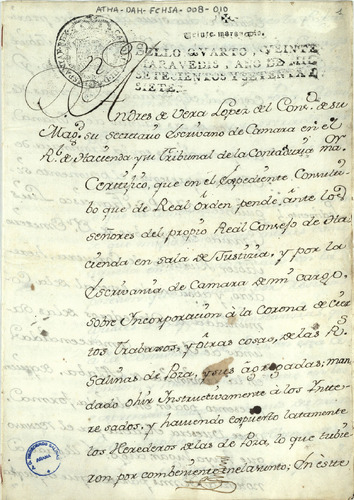 ATHA-DAH-FCHSA-008-010
1
Veinte maravedis.
SELLO QVARTO, VEINTE
MARAVEDIS, AÑO DE MIL
SETECIENTOS Y SETENTA Y
SIETE.
Andres de Vera Lopez del Cons.º de su
Mag.d su secretario Escrivano de Camara en el
R.l de Hacienda y su Tribunal de la Contaduria m.or
Certifico, que en el Expediente Consulti-
bo que de Real Orden pende, ante los
señores del propio Real Consejo de Ha
cienda en sala de Justicia, y por la
Escrivania de Camara de mi cargo
sobre Incorporacion à la Corona de cier
tos Trabazos, y otras cosas, de las R.s
Salinas de Poza, y sus agregadas; man
dado Ohir Instructivamente à los Intere
sados, y haviendo expuesto latamente
los Herederos de las de Poza, lo que tubie
ron por combeniente en el asunto; En este